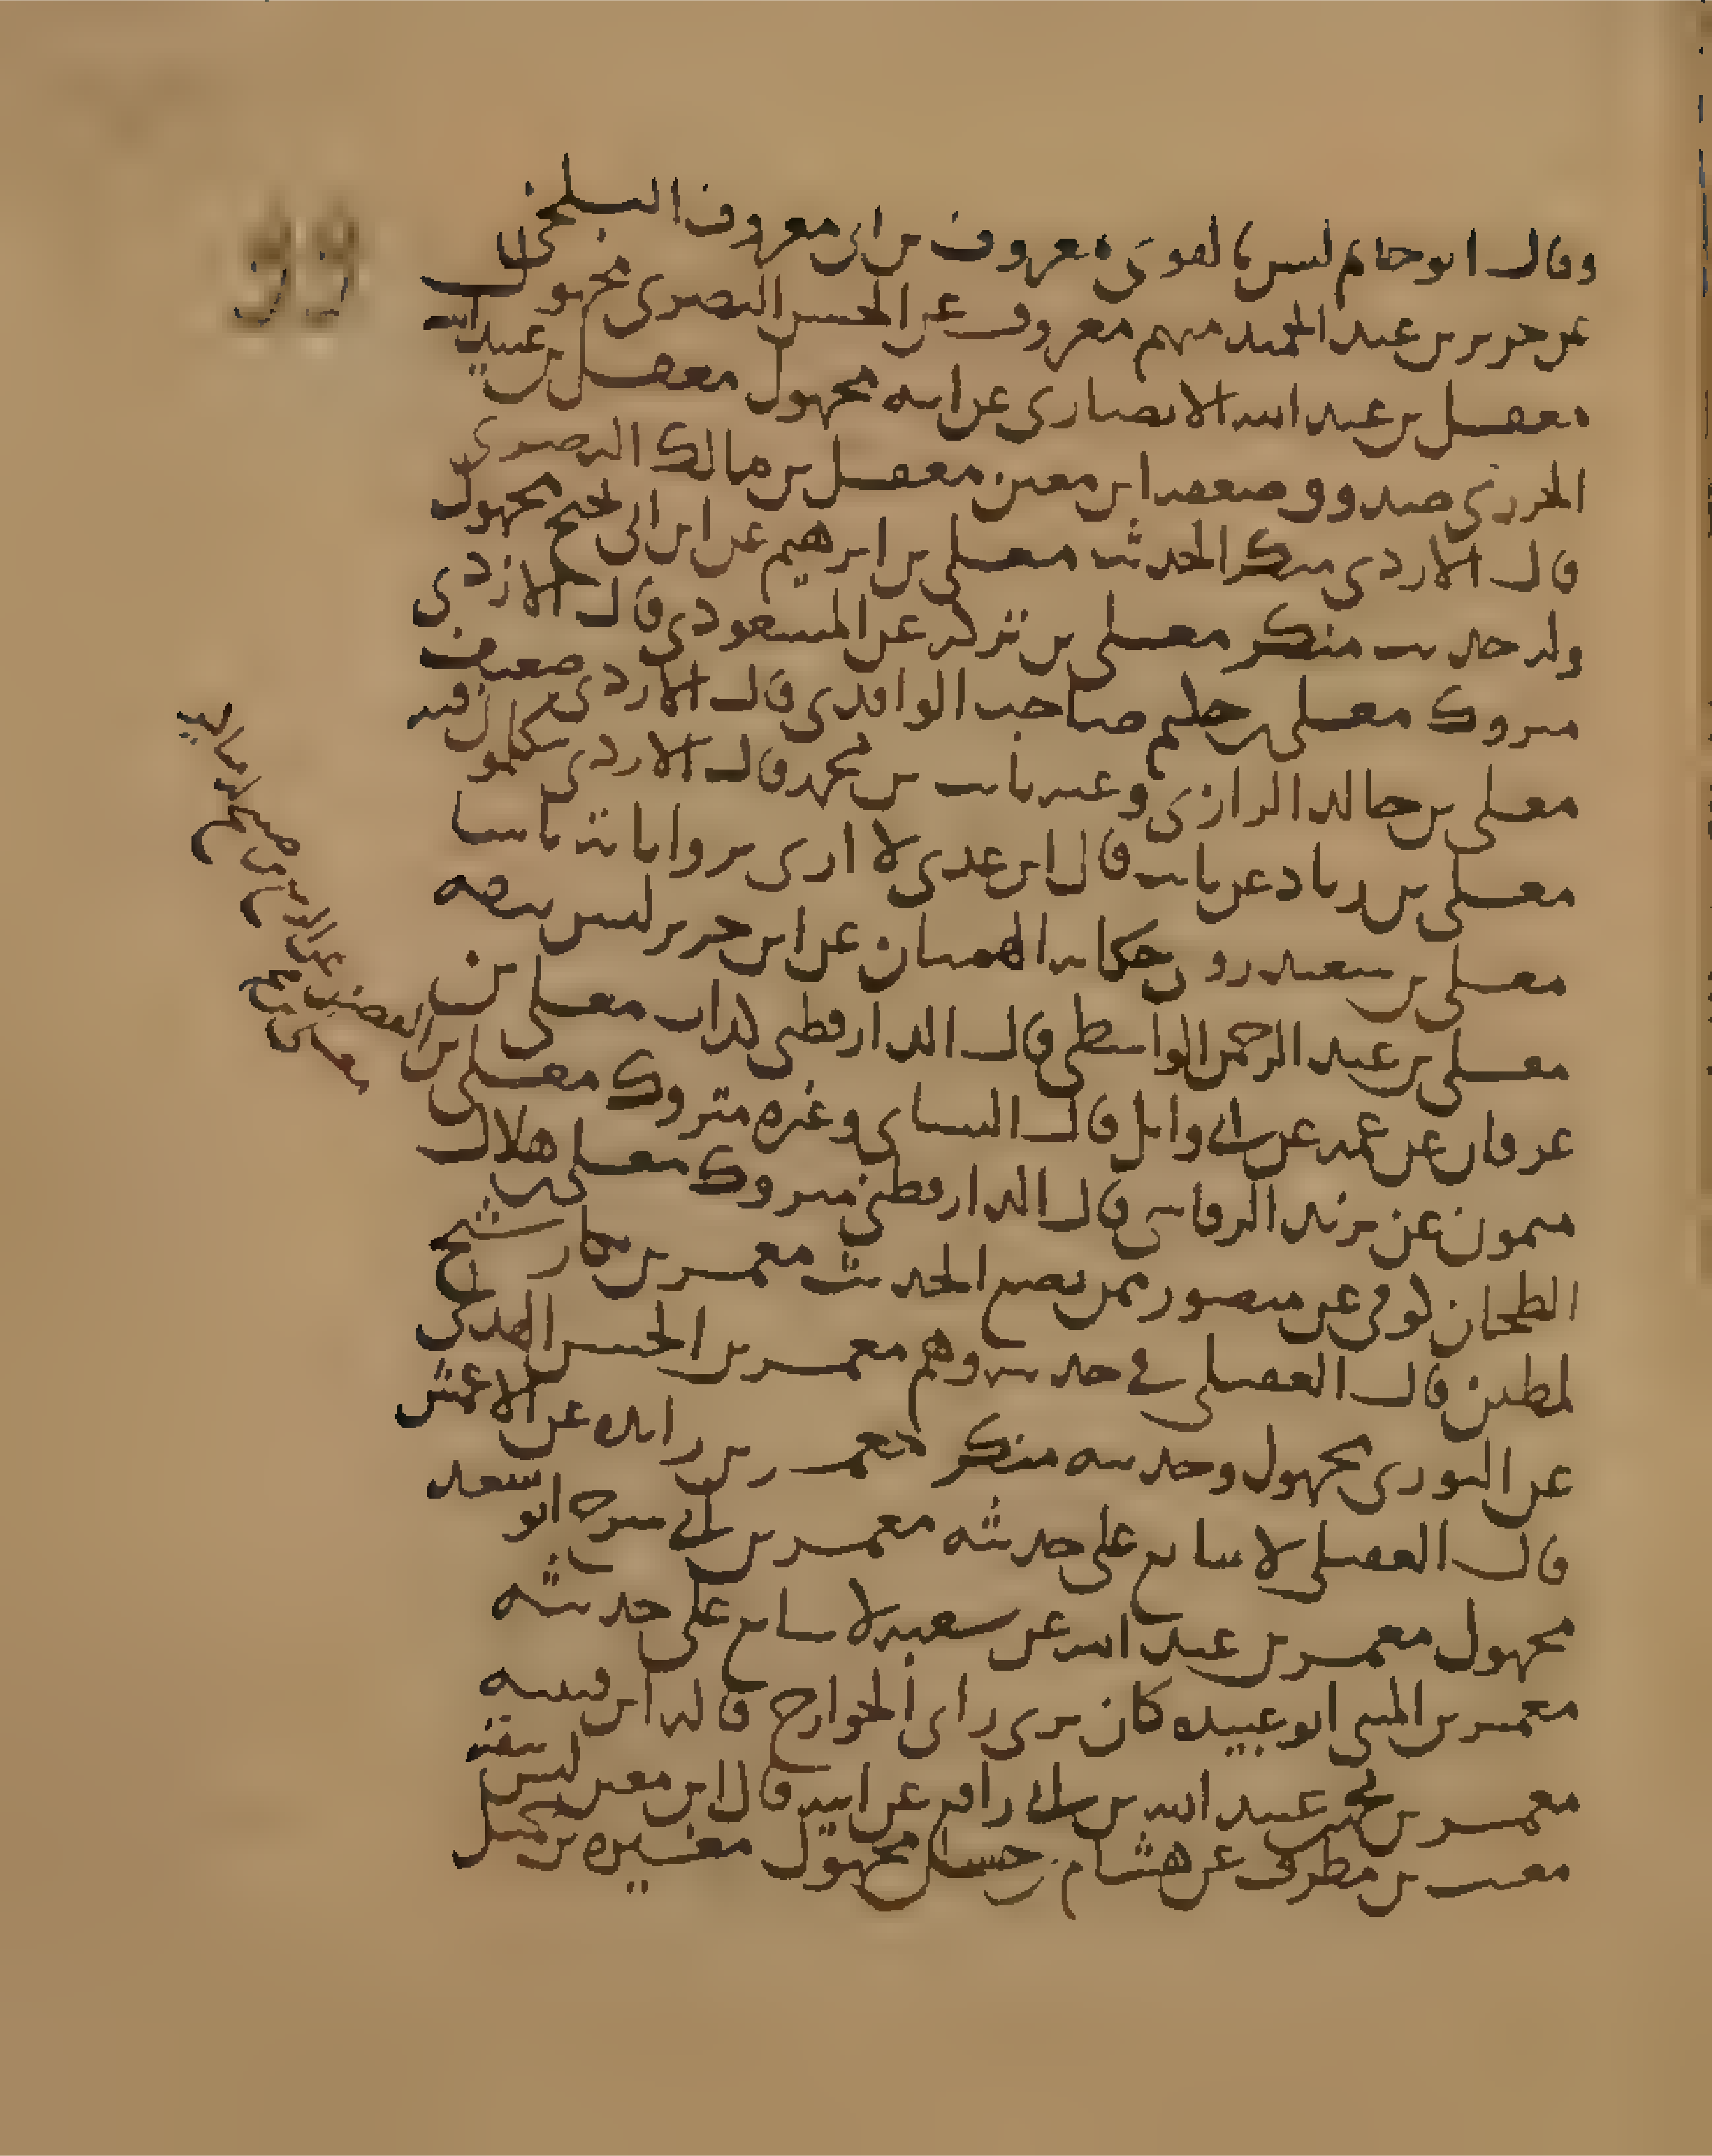 وقال ابو حاتم ليس بالقوي معروف بن ابي معروف البلخي
عن جرير بن عبد الحميد متهم معروف عن الحسن البصري مجهول
معقل بن عبد الله الانصاري عن ابيه مجهول معقل بن عبيد الله
الجزري صدوق وضعفه ابن معين معقل بن مالك البصري
قال الازدي منكر الحديث معلى بن ابرهيم عن ابن ابي نجيح مجهول
وله حديث منكر معلى بن تركه عن المسعودي قال الازدي
متروك معلى بن حليم صاحب الواقدي قال الازدي ضعيف
معلى بن خالد الرازي وعنه ثابت بن محمد قال الازدي يتكلمون فيه
معلى بن زياد عن ثابت قال ابن عدي لا ارى برواياته باسا
معلى بن سعيد روى حكايه الهميان عن ابن جرير ليس بثقه
معلى بن عبد الرحمن الواسطي قال الدارقطني كذاب معلى بن
عرفان عن عمه عن ابي وايل قال النساي وغيره متروك معلى بن الفضل
ميمون عن يزيد الرقاشي قال الدارقطني متروك معلى بن هلال
الطحان كوفي عن منصور ممن يضع الحديث معمر بن بكار شيخ
لمطين قال العقيلي في حديثه وهم معمر بن الحسن الهذلي
عن الثوري مجهول وحديثه منكر معمر بن زايده عن الاعمش
قال العقيلي لا يتابع على حديثه معمر بن ابي سرح ابو سعد
مجهول معمر بن عبد الله عن شعبه لا يتابع على حديثه
معمر بن المثنى ابو عبيده كان يرى راى الخوارج قاله ابن قتيبه
معمر بن محمد بن عبيد الله بن ابي رافع عن ابيه قال ابن معين ليس بثقه
معتب بن مطرف عن هشام بن حسان مجهول مغيره بن جميل